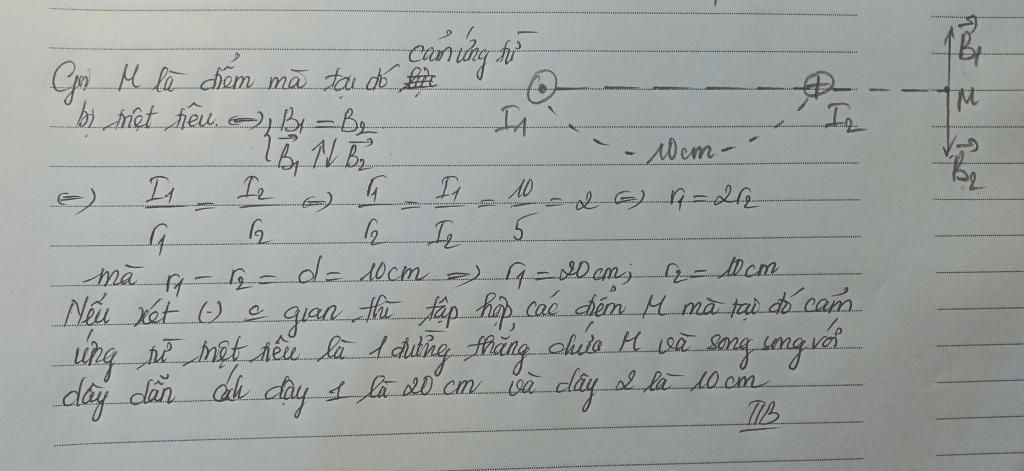 cảm ứng từ
Gọi M là điểm mà tại đó
bị triệt tiêu. <=> { B₁ = B₂
B₁ ↑↓ B₂
I₁ I₂ 10cm M B₁ B₂
<=> I₁/r₁ = I₂/r₂ <=> r₁/r₂ = I₁/I₂ = 10/5 = 2 <=> r₁ = 2r₂
mà r₁ - r₂ = d = 10cm => r₁ = 20cm; r₂ = 10cm
Nếu xét (·) gian thì tập hợp các điểm M mà tại đó cảm
ứng từ triệt tiêu là 1 đường thẳng chứa M và song song với
dây dẫn cách dây 1 là 20 cm và dây 2 là 10 cm